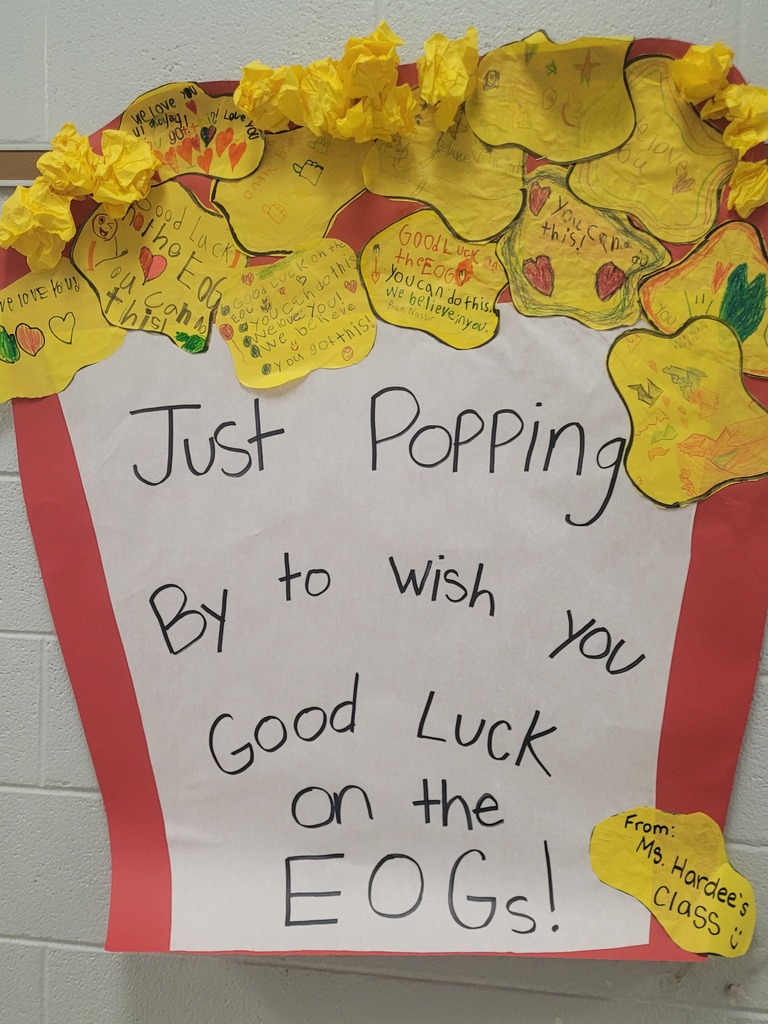 we love you
Love you
Good Luck
the EOG
you can do
this!
we love you!
Good Luck on the
you can do this
We love you!
We believe
you got this!
Good Luck on
the EOG
you can do this.
We believe in you.
From Nassir
You can do
this!
love
you
Just Popping
By to wish you
Good Luck
on the
EOGs!
From:
Ms. Hardee's
Class